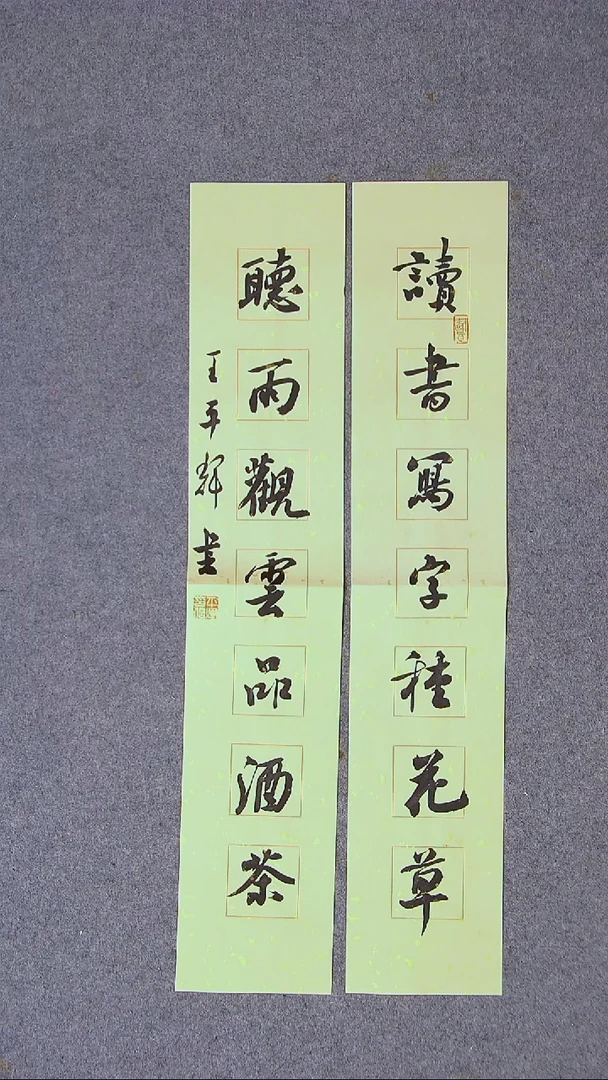 讀書寫字種花草
聽雨觀雲品酒茶
王平輝書